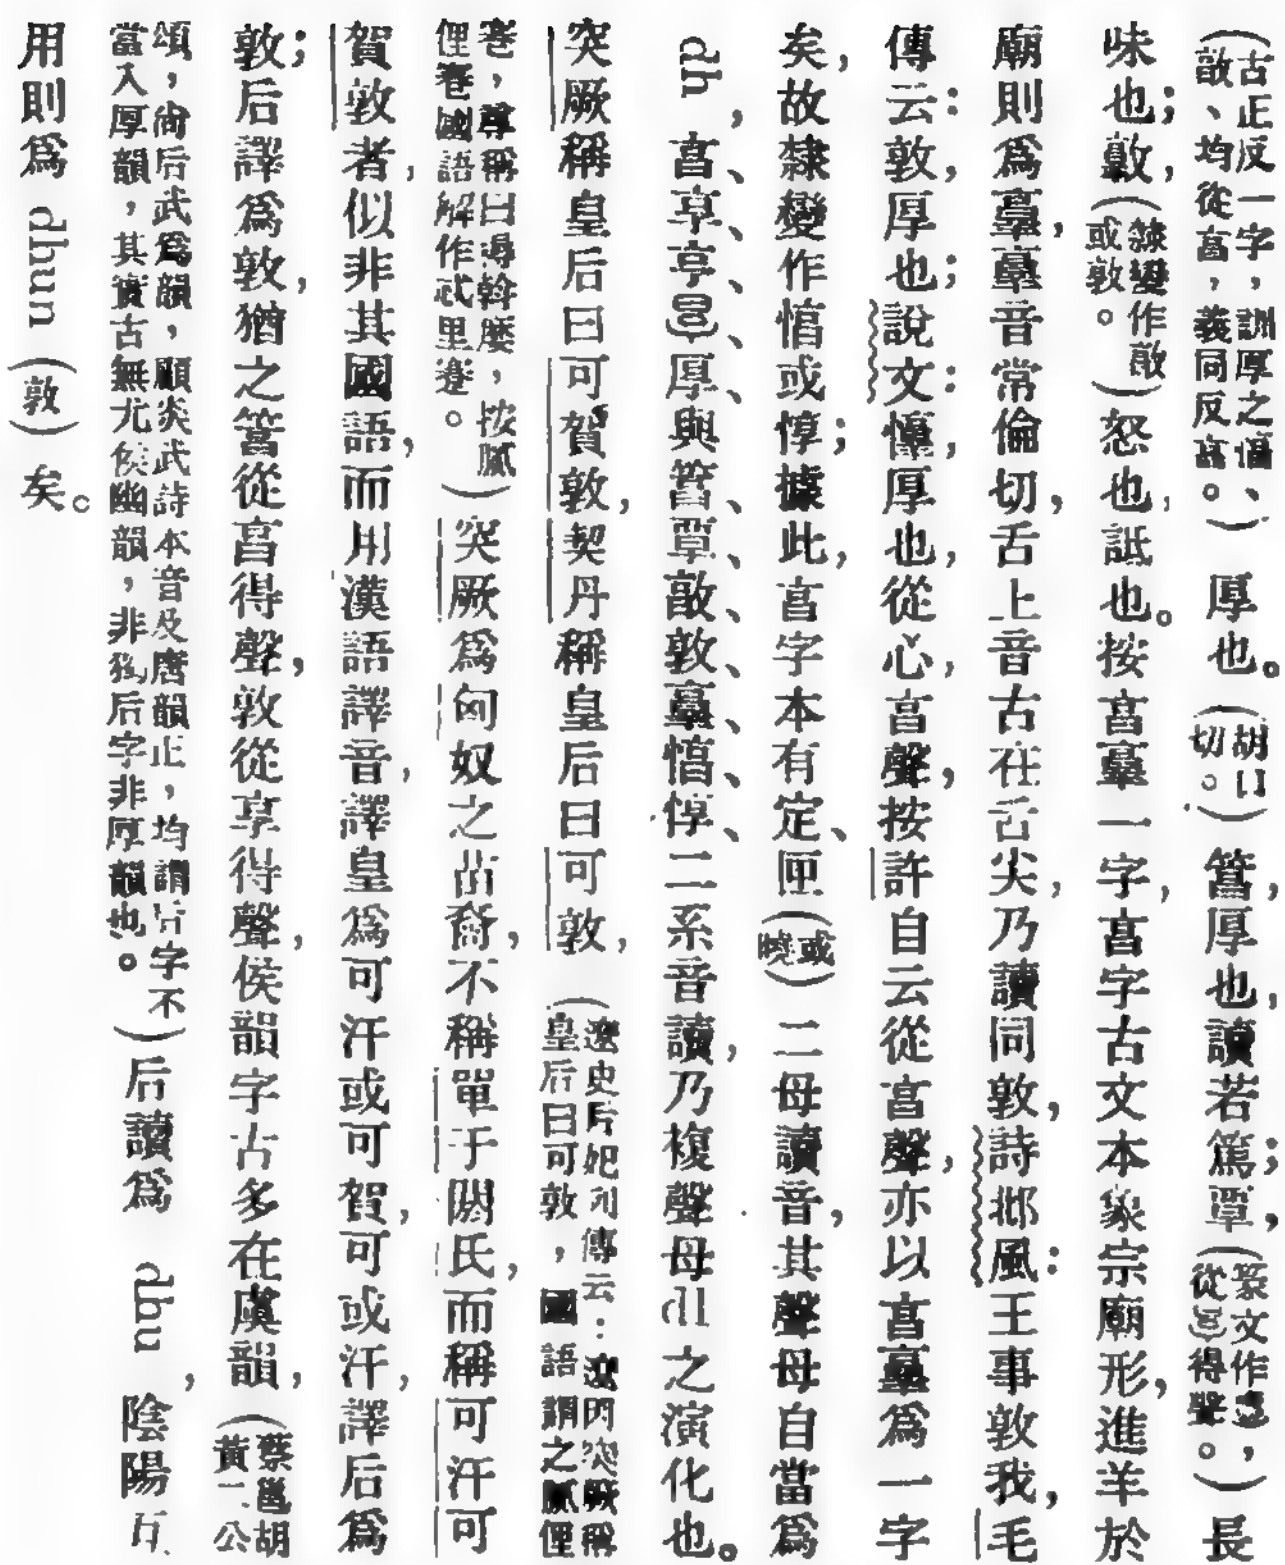 （古正反一字，訓厚之亯、㪟、均從亯，義同反亯。）厚也。（胡口切。）䈞，厚也，讀若篤；覃，（篆文作，從得聲。）長
味也；㪟，（隸變作敵或敦。）怒也，詆也。按亯𦎫一字，亯字古文本象宗廟形，進羊於
廟則爲𦎫，𦎫音常倫切，舌上音古在舌尖，乃讀同敦，詩邶風：王事敦我，毛
傳云：敦，厚也；說文：憞，厚也，從心，亯聲，按許自云從亯聲，亦以亯𦎫爲一字
矣，故隸變作㥁或惇；據此，亯字本有定、匣（或曉）二母讀音，其聲母自當爲
dh，亯、享、亨、厚、與䈞、覃、㪟、敦、𦎫、㥁、惇、二系音讀，乃複聲母dl之演化也。
突厥稱皇后曰可賀敦，契丹稱皇后曰可敦，（遼史后妃列傳云：遼因突厥稱皇后曰可敦，國語謂之膩俚
蹇，尊稱曰耨斡麼，按膩俚蹇國語解作忒里蹇。）突厥爲匈奴之苗裔，不稱單于閼氏，而稱可汗可
賀敦者，似非其國語，而用漢語譯音，譯皇爲可汗或可賀，可或汗，譯后爲
敦；后譯爲敦，猶之䈞從亯得聲，敦從享得聲，侯韻字古多在虞韻，（蔡邕胡黃二公
頌，尙后武爲韻，顧炎武詩本音及唐韻正，均謂后字不當入厚韻，其實古無尤侯幽韻，非獨后字非厚韻也。）后讀爲 dhu，陰陽互
用則爲 dhun（敦）矣。